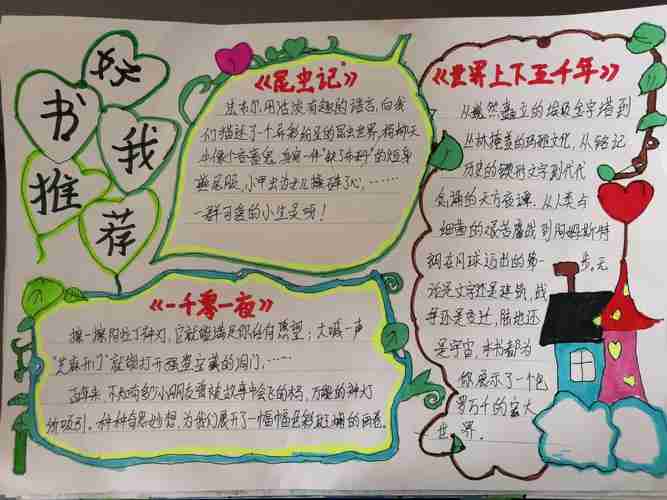 好
书
我
推
荐
《昆虫记》
法布尔用活泼有趣的语言,向我
们描述了一个异彩纷呈的昆虫世界,杨柳天
牛像个吝啬鬼,身穿一件"缺了布料"的短身
燕尾服,小甲虫为它操碎了心,……
一群可爱的小生灵呀!
《一千零一夜》
擦一擦阿拉丁神灯,它就能满足你任何愿望;大喊一声
"芝麻开门"就能打开强盗宝藏的洞门,……
百年来,不知有多少小朋友曾被故事中会飞的木马,万能的神灯
所吸引。种种奇思妙想,为我们展开了一幅幅色彩斑斓的画卷。
《世界上下五千年》
从巍然矗立的埃及金字塔到
丛林掩盖的玛雅文化,从铭记
历史的楔形文字到代代
传诵的天方夜谭,从人类与
细菌的艰苦鏖战到阿姆斯特
朗在月球迈出的第一步。无
论是文字还是建筑,战
争还是变迁,陆地还
是宇宙,本书都为
你展示了一个包
罗万千的宏大
世界。